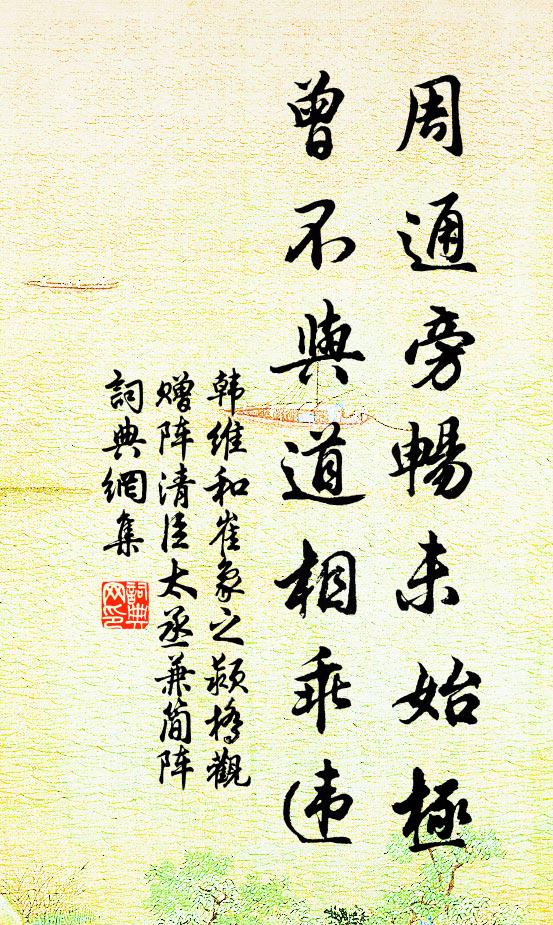 周通旁暢未始極
曾不與道相乖违
韩維和崔象之颍橋觀
赠阵清臣太丞兼简阵
詞典網集
詞典网印